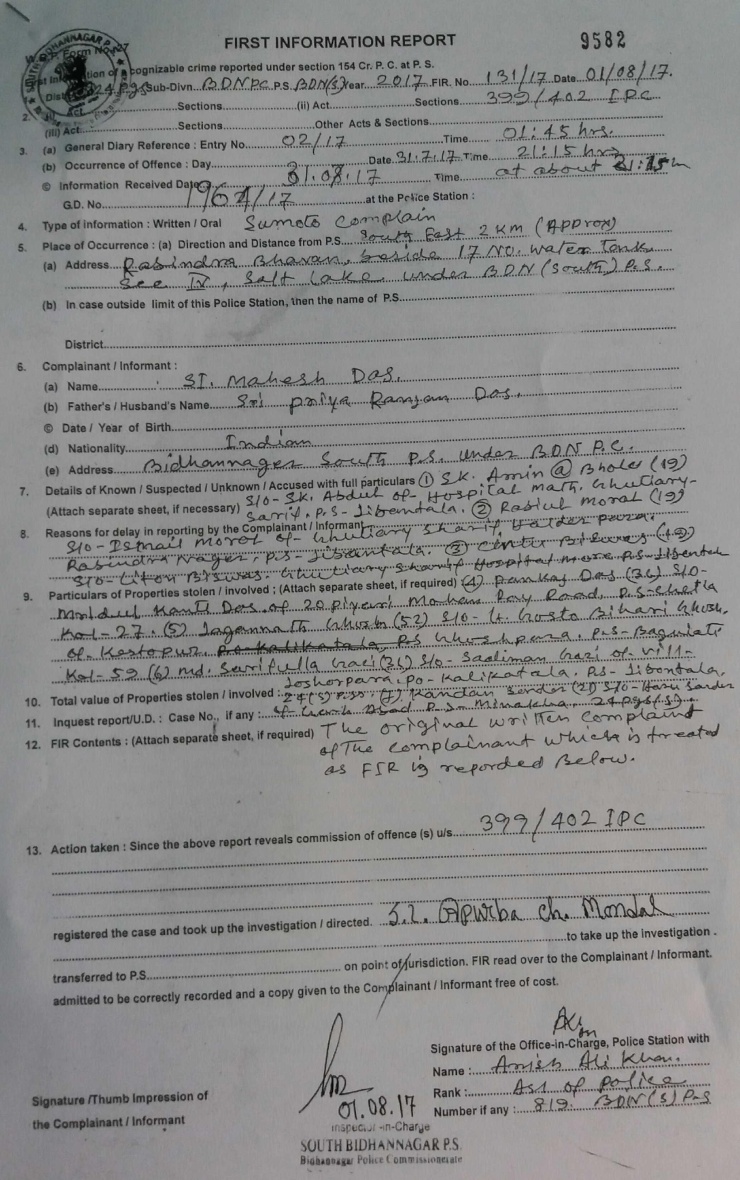 FIRST INFORMATION REPORT 9582
SOUTH BIDHANNAGAR P.S.
ognizable crime reported under section 154 Cr. P. C. at P. S.
24 pgs Sub-Divn. BDNPC P.S. BDN(S) Year 2017 FIR. No 131/17 Date 01/08/17.
2. Act Sections (ii) Act Sections 399/402 IPC
(iii) Act Sections Other Acts & Sections
3. (a) General Diary Reference : Entry No. 02/17 Time 01:45 hrs.
(b) Occurrence of Offence : Day Date 31.7.17 Time 21:15 hrs
© Information Received Date 31.07.17 Time at about
G.D. No. 1964/17 at the Police Station :
4. Type of information : Written / Oral Sumoto Complain
5. Place of Occurrence : (a) Direction and Distance from P.S. South East 2 KM (Approx)
(a) Address Rabindra Bhavan, beside 17 NO. Water Tank
Sec IV, Salt Lake under BDN (South) P.S.
(b) In case outside limit of this Police Station, then the name of P.S.
District
6. Complainant / Informant :
(a) Name SI. Mahesh Das.
(b) Father's / Husband's Name Sri Priya Ranjan Das.
© Date / Year of Birth
(d) Nationality Indian
(e) Address Bidhannager South P.S. under BDN P.C.
7. Details of Known / Suspected / Unknown / Accused with full particulars (1) SK. Amin @ Bholer (19)
(Attach separate sheet, if necessary) S/o- SK. Abdul of- Hospital math, Ghutiary-
Sarif, P.S- Jibantala. (2) Rabiul Moral (19)
8. Reasons for delay in reporting by the Complainant / Informant
S/o- Ismail moral of- Ghutiary Sharif Halder para.
Rabindra Nager, P.S- Jibantala. (3) Biswas (19)
S/o- Liton Biswas. Ghutiary Sharif Hospital more P.S- Jibantala
9. Particulars of Properties stolen / involved : (Attach separate sheet, if required) (4) Pankaj Das (36) S/o-
Mridul Kanti Das of 20 Piyari Mohan Ray Road, P.S- Chetla
Kol- 27. (5) Jagannath Ghosh (52) S/o- Lt. Gosto Bihari Ghosh,
of- Kestopur, Ghoshpara, P.S- Baguiati
Kol- 59 (6) Md. Sarifulla Gazi (36) S/o- Sadiman Gazi of vill-
Joshorpara, Po- Kalikatala, P.S- Jibantala,
10. Total value of Properties stolen / involved : 24 (S) Pgs. (7) Kandan Sarder (21) S/o- Haru Sarder
11. Inquest report/U.D. : Case No., if any : of- Abad P.S- Minakha, 24 pgs (S).
12. FIR Contents : (Attach separate sheet, if required) The original written complaint
of The complainant which is treated
as FIR is reported Below.
13. Action taken : Since the above report reveals commission of offence (s) u/s 399/402 IPC
registered the case and took up the investigation / directed. S.I. Apurba ch. Mondal
to take up the investigation .
transferred to P.S. on point of jurisdiction. FIR read over to the Complainant / Informant.
admitted to be correctly recorded and a copy given to the Complainant / Informant free of cost.
Signature of the Office-in-Charge, Police Station with
Name : Anish Ali Khan.
Rank : ASI of police
Number if any : 819. BDN(S) P.S
Signature /Thumb Impression of
the Complainant / Informant
01.08.17
Inspector-in-Charge
SOUTH BIDHANNAGAR P.S.
Bidhannagar Police Commissionerate